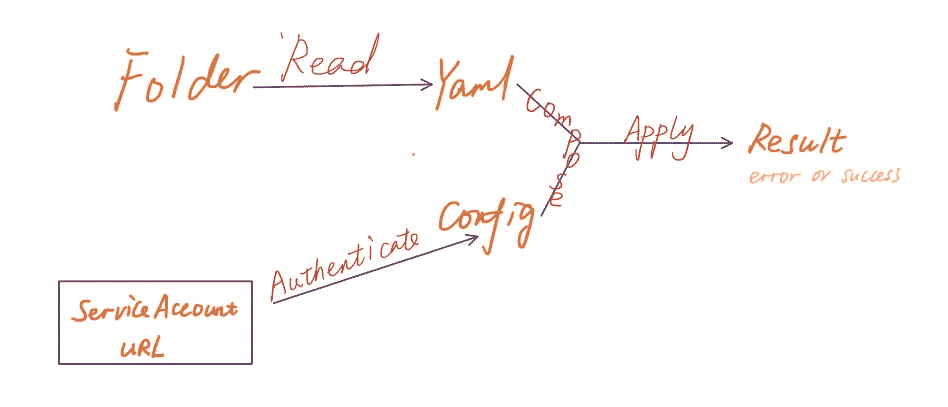 Folder
Read
Yaml
Compose
Apply
Result
error or success
Config
Authenticate
ServiceAccount
URL